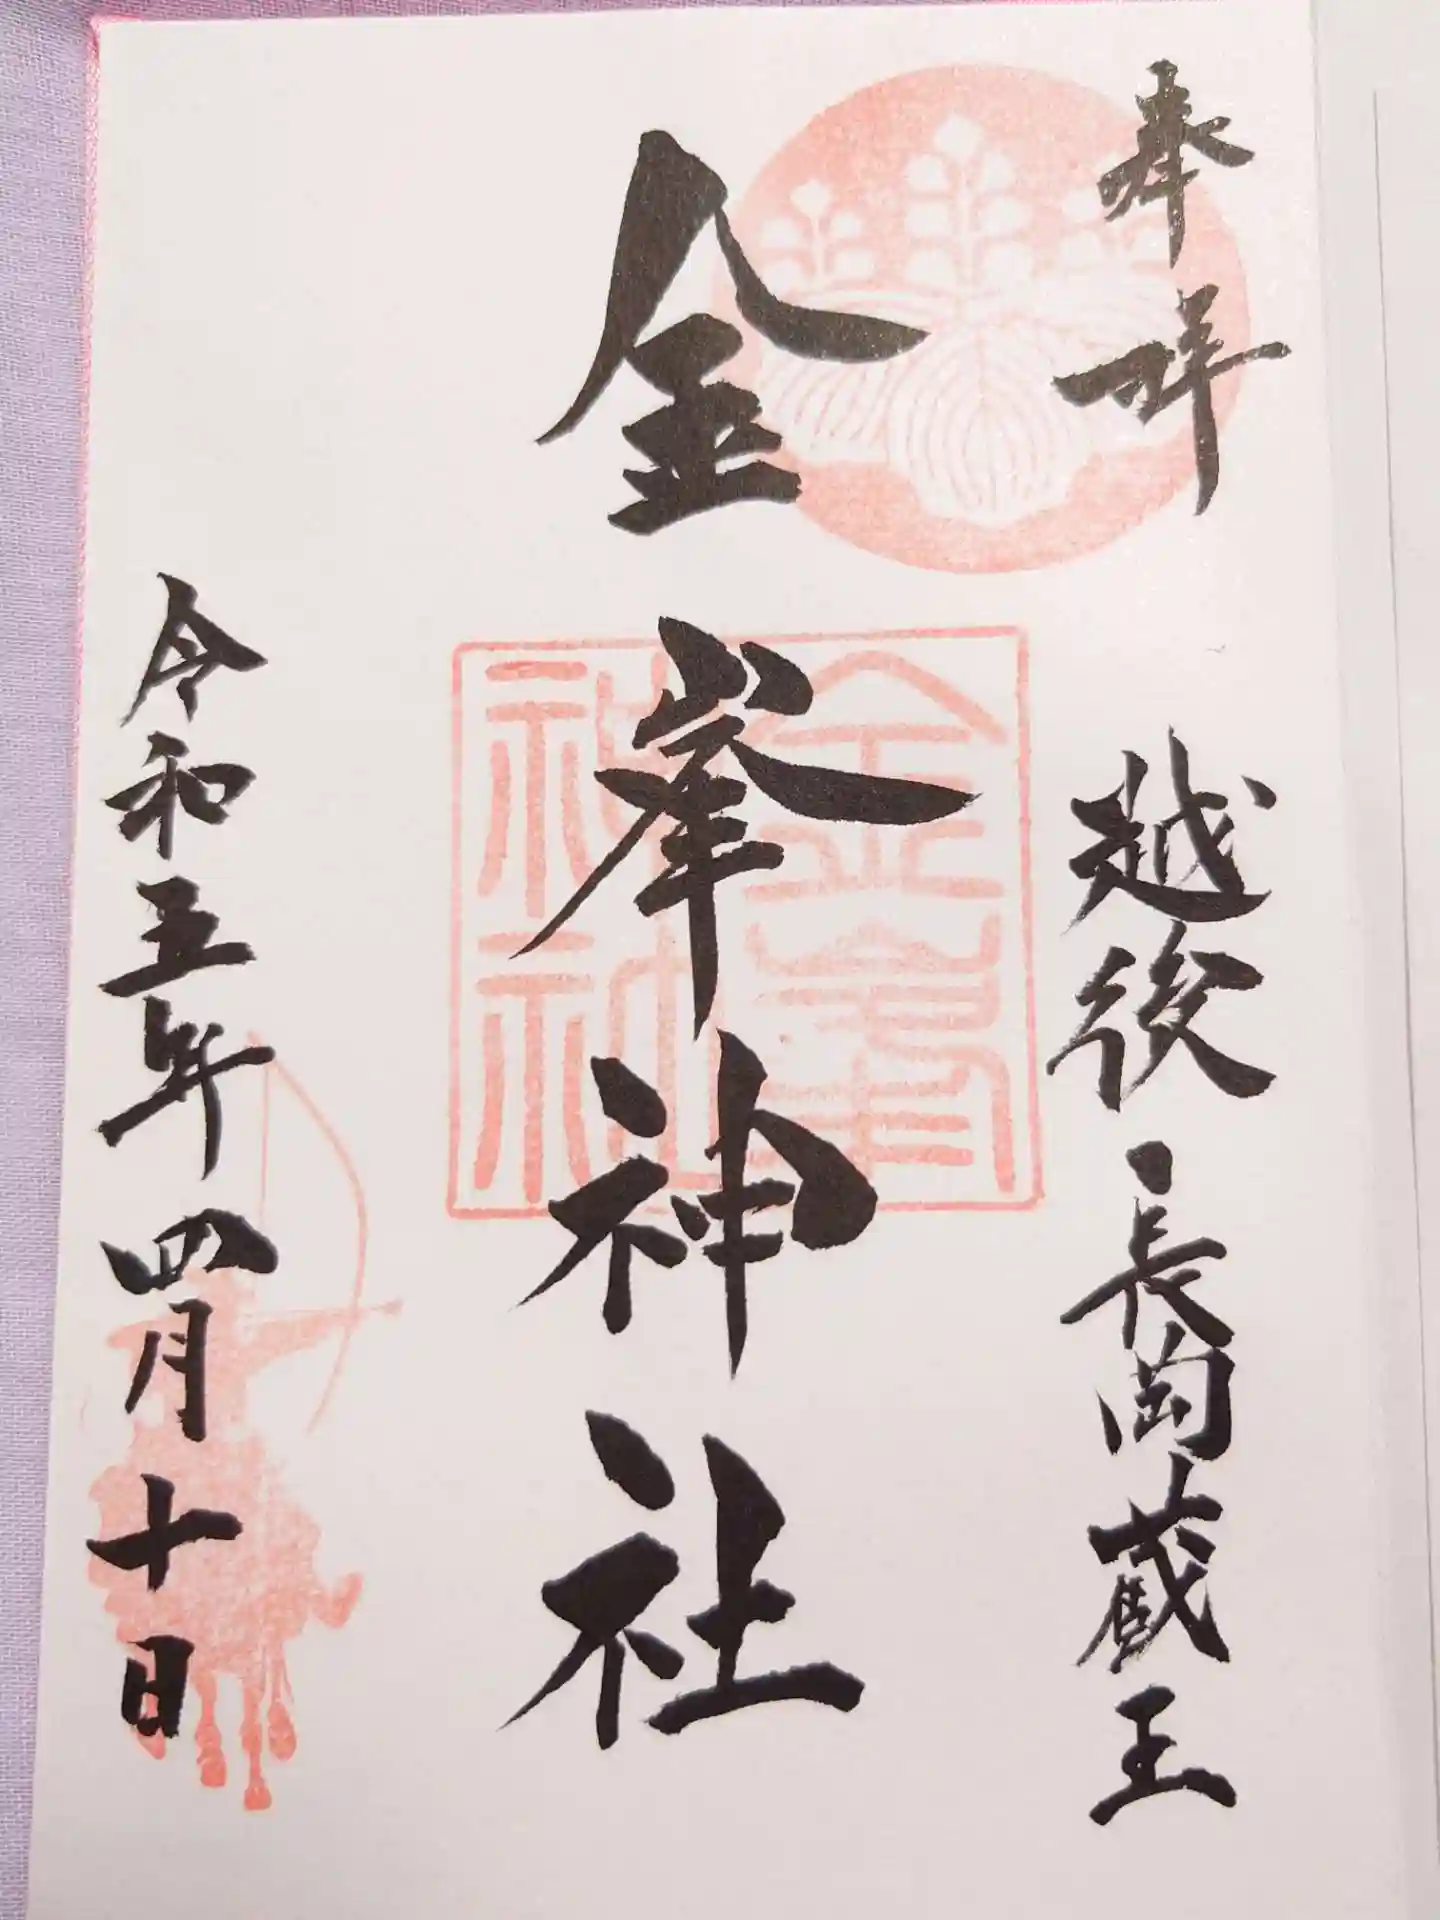 奉拝
越後・長岡蔵王
金峯神社
金峯
神社
令和五年四月十日